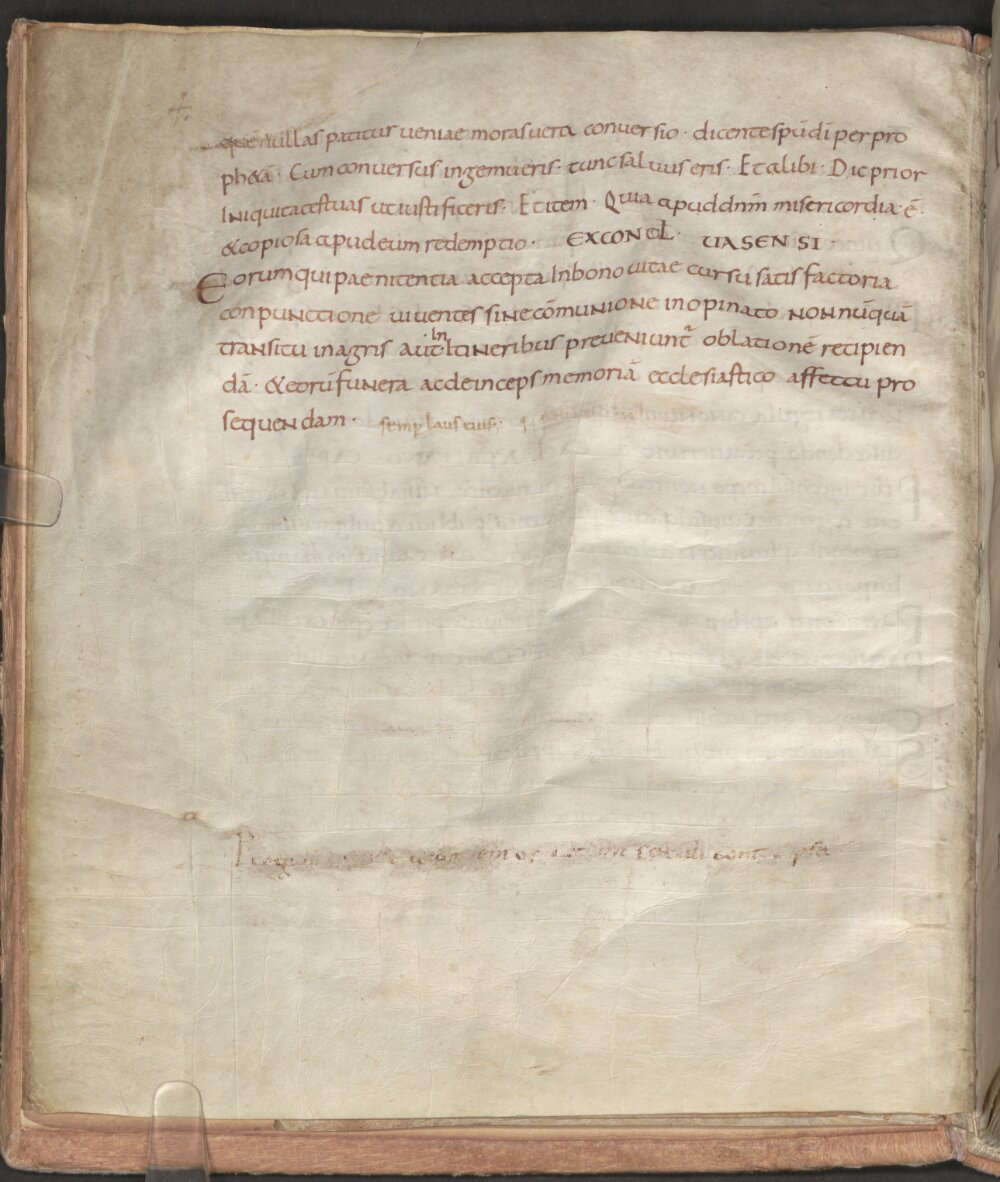 quae nullas patitur ueniae moras uera conuersio · dicente spu di per pro
ph&ā · Cum conuersus ingemueris · tunc saluus eris · Et alibi · Dic prior
Iniquitates tuas ut iustificeris · Et item · Quia apud dnm misericordia · ē ·
& copiosa apud eum redemptio · EX CONCIL · UASENSI ·
Eorum qui paenitentia accepta In bono uitae cursu satisfactoria
conpunctione uiuentes sine cōmunione inopinato nonnūquā
transitu in agris aut · In Itineribus preueniunt̄ oblationē recipien
dā · & eorū funera ac deinceps memoriā ecclesiastico affectu pro
sequendam · semp laus eius ;